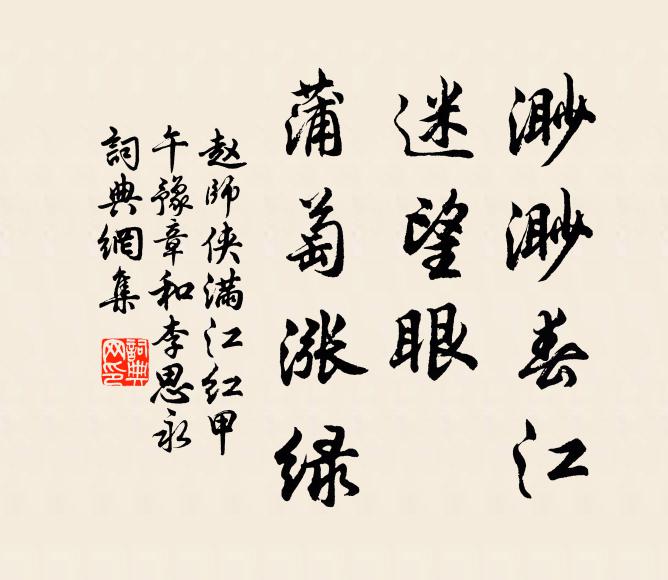 渺渺春江
迷望眼
蒲萄涨绿
赵师侠满江红甲
午豫章和李思永
詞典網集
詞典
网印